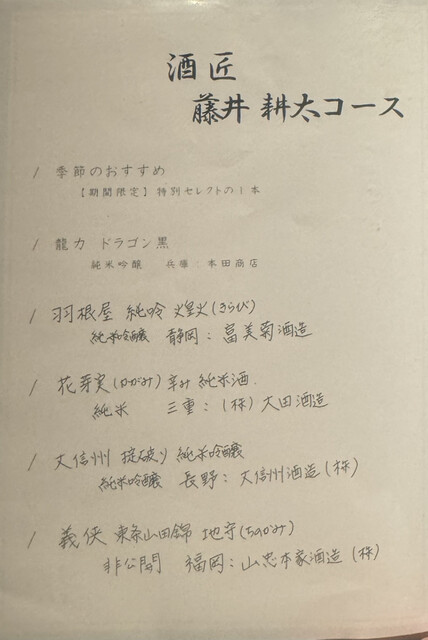 酒匠
藤井 耕太コース
/ 季節のおすすめ
【期間限定】特別セレクトの1本
/ 龍力 ドラゴン黒
純米吟醸 兵庫:本田商店
/ 羽根屋 純吟 煌火(きらび)
純米吟醸 静岡:富美菊酒造
/ 花芽実(かがみ)辛み 純米酒.
純米 三重:(株)大田酒造
/ 大信州 掟破り 純米吟醸
純米吟醸 長野:大信州酒造(株)
/ 義侠 東条山田錦 地守(ちのがみ)
非公開 福岡:山忠本家酒造(株)